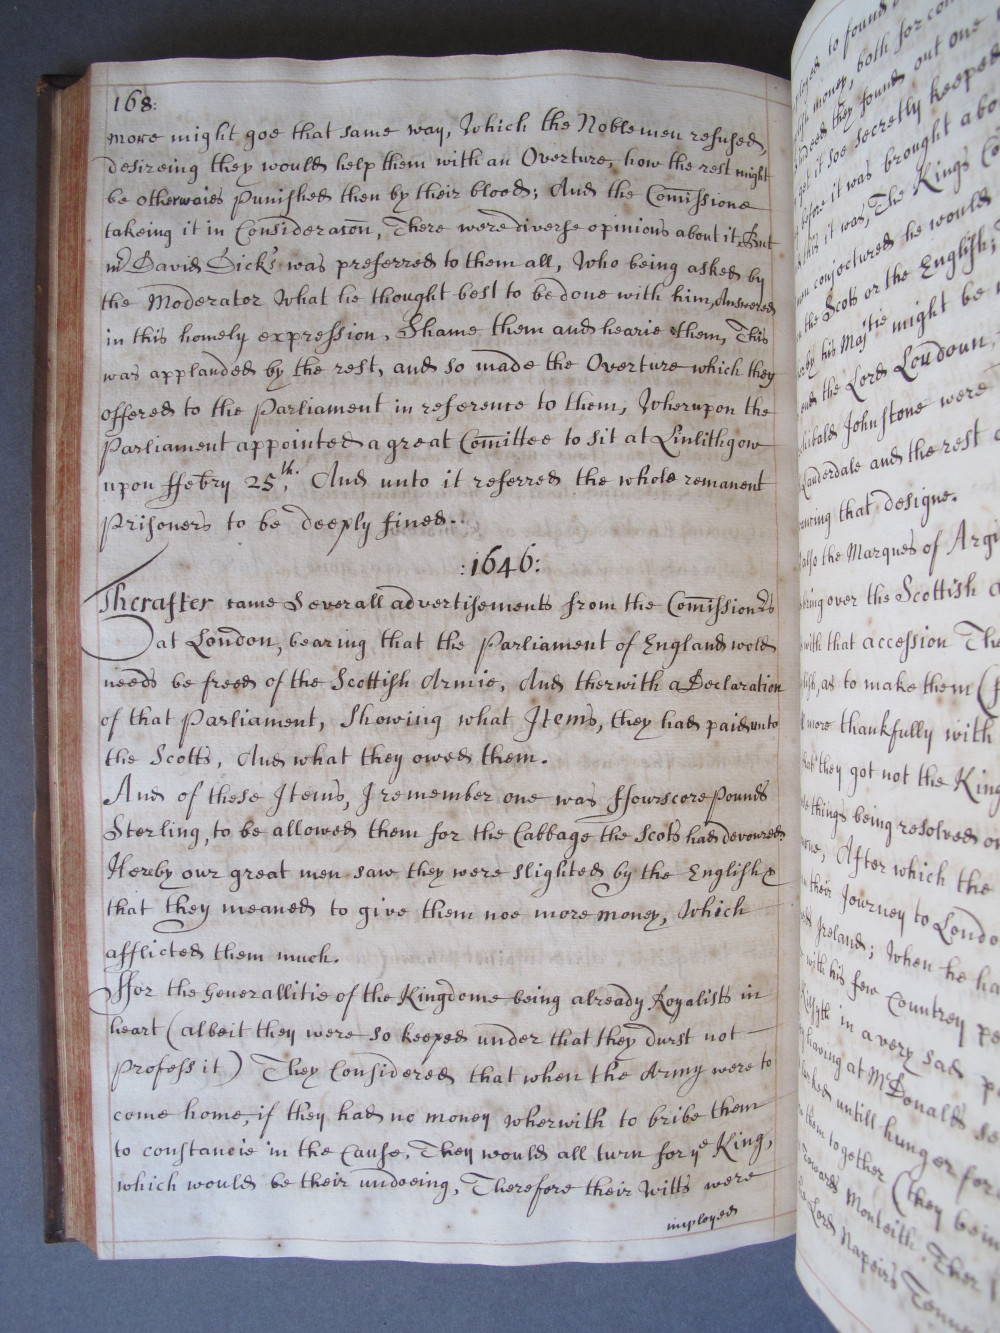 168:
more might goe that same way, Which the Noblemen refused,
desireing they would help them with an Overture, how the rest might
be otherwaies Punished then by their blood; And the Com̅issione
takeing it in Considerac̅on, There were diverse opinions about it, But
mr David Dick's was preferred to them all, Who being asked by
the Moderator What he thought best to be done with him, Answered
in this homely expression, Shame them and hearie them, This
was applauded by the rest, and so made the Overture which they
offered to the Parliament in reference to them, Wherupon the
Parliament appointed a great Com̅ittee to sit at Linlithgow
upon ffebry 25th. And unto it referred the whole remanent
Prisoners to be deeply fined.
:1646:
Therafter came Severall advertisements from the Com̅issionrs
at London, bearing that the Parliament of England wold
needs be freed of the Scottish Armie, And therwith a Declaration
of that Parliament, Showing what Items, they had paid unto
the Scotts, And what they owed them.
And of these Items, I remember one was ffowrscore Pounds
Sterling, to be allowed them for the Cabbage the Scots had devoured:
Hereby owr great men saw they were slighted by the English &
that they meaned to give them noe more money, Which
afflicted them much.
ffor the Generallitie of the Kingdome being already Royalists in
heart (albeit they were so keeped under that they durst not
Profess it) They Considered that when the Army were to
come home, if they had no money wherwith to bribe them
to constancie in the Cause, They would all turn for ye King,
which would be their undoeing, Therefore their Witts were
imployed
to found
money, both for
indeed they found out one
get it soe secretly keeped
before it was brought
it was, The Kings
conjectured he would
the Scots or the English;
his Matie might be
and the Lord Loudoun,
Johnstone were
Lauderdale and the rest
that designe.
also the Marques of
bring over the Scottish
with that accession
as to make them
more thankfully with
that they got not the King
things being resolved
After which the
their Journey to
Ireland; When he
with his few Countrey
Kilsyth in a very sad
having at McDonalds
untill hunger
them together (they
towards Monteith, Ther
Lord Napeirs